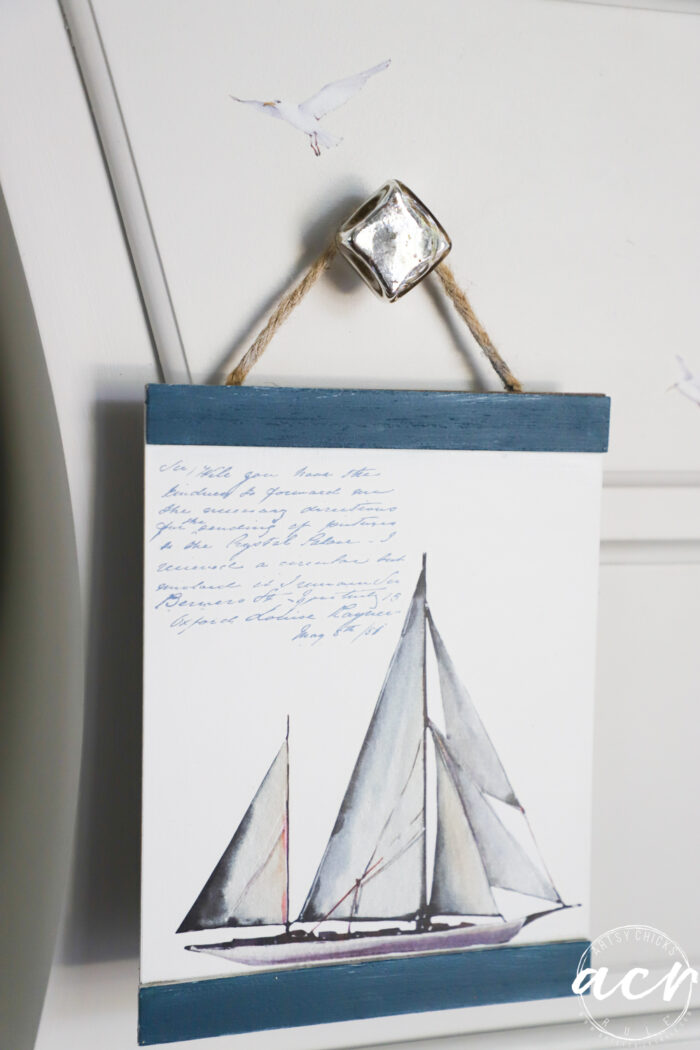 Sir, Will you have the
kindness to forward me
the necessary directions
for the sending of pictures
to the Crystal Palace - I
received a circular but
it I remain Sir
Berners St
Oxford Louise Rayner
May 8th /58
ARTSY CHICKS
acr
RULE